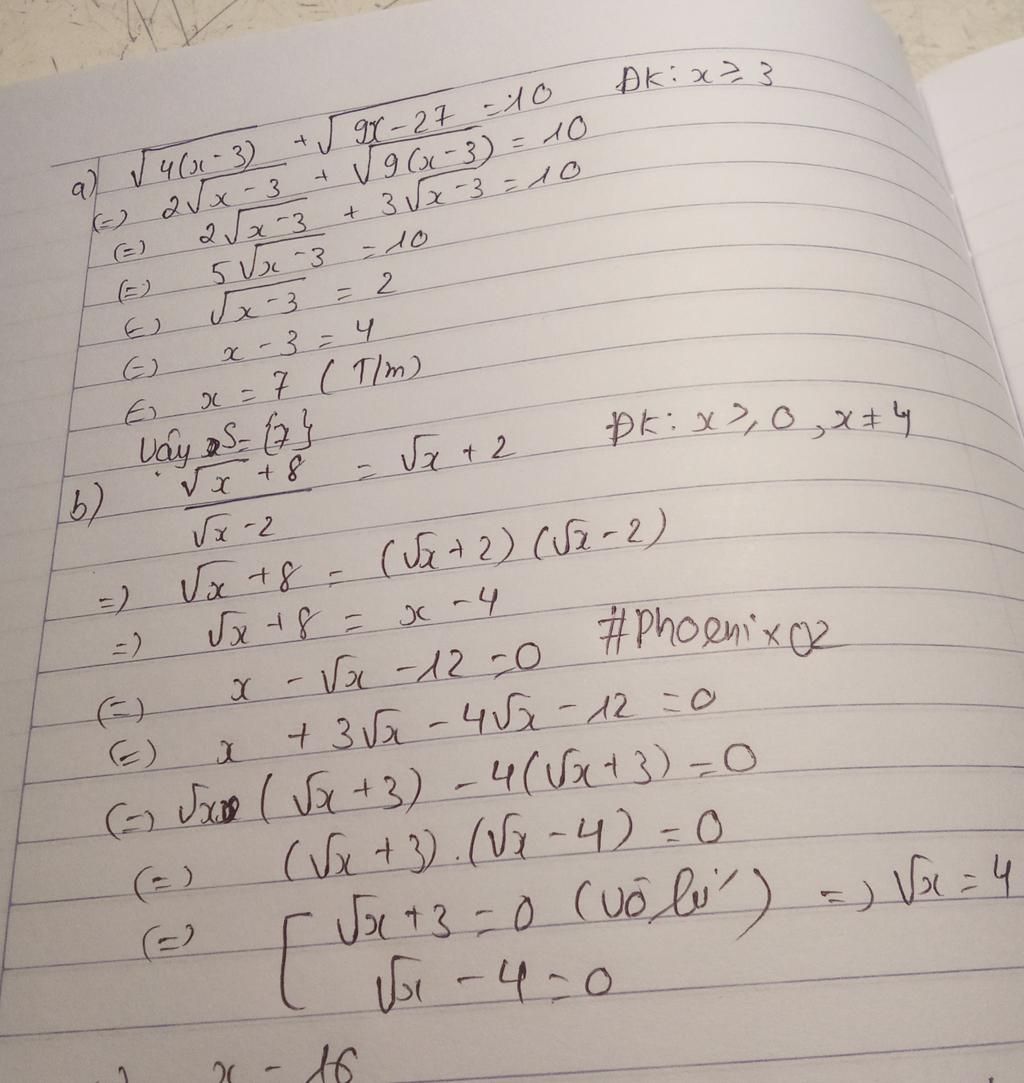 a) √4(x-3) + √9x-27 = 10 ĐK: x ≥ 3
(=) 2√x-3 + √9(x-3) = 10
(=) 2√x-3 + 3√x-3 = 10
(=) 5√x-3 = 10
(=) √x-3 = 2
(=) x - 3 = 4
(=) x = 7 (T/m)
Vậy S={7}
b) (√x + 8)/(√x - 2) = √x + 2 ĐK: x ≥ 0, x ≠ 4
=) √x + 8 = (√x + 2) (√x - 2)
=) √x + 8 = x - 4
(=) x - √x - 12 = 0 #Phoenix02
(=) x + 3√x - 4√x - 12 = 0
(=) √x (√x + 3) - 4(√x + 3) = 0
(=) (√x + 3).(√x - 4) = 0
(=) [ √x + 3 = 0 (vô lí) =) √x = 4
√x - 4 = 0
x = 16